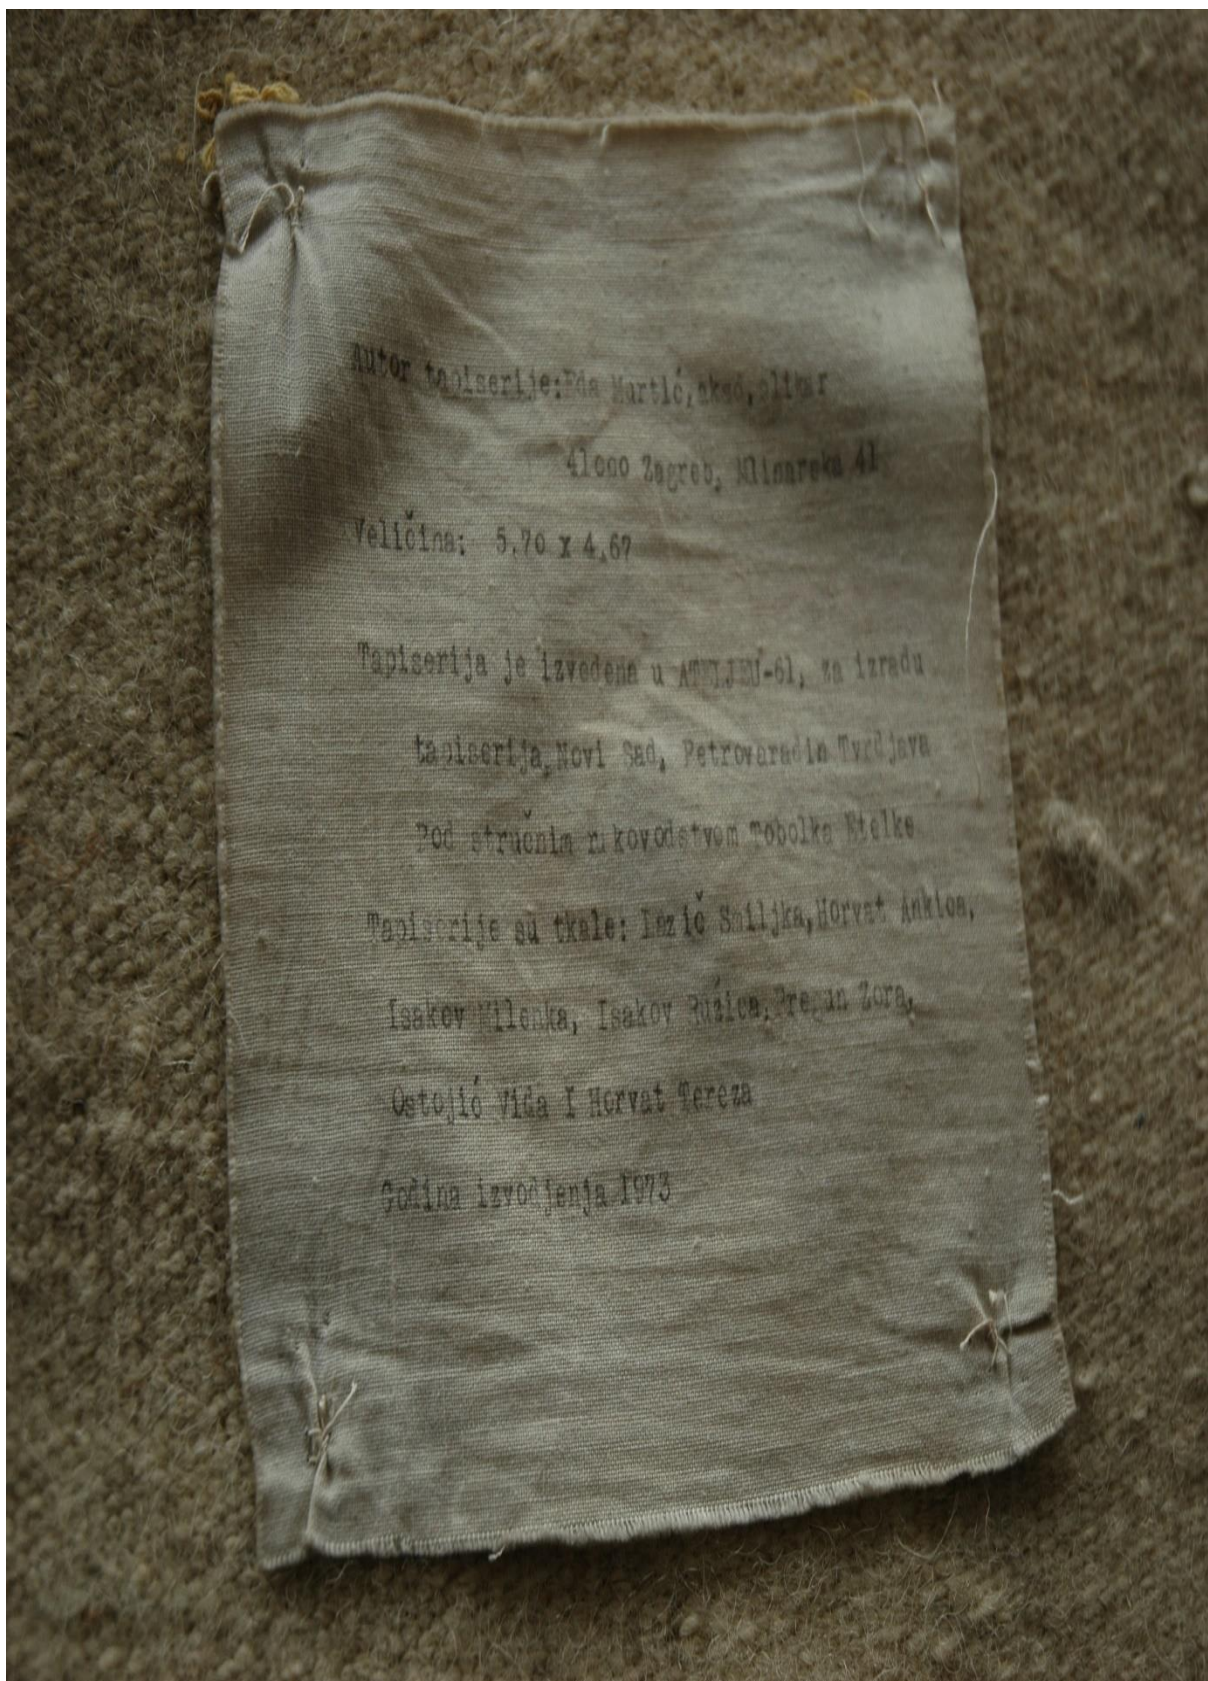 Autor tapiserije: Eda Murtić, akad, slikar
41000 Zagreb, Mlinarska 41
Veličina: 5.70 x 4.67
Tapiserija je izvedena u ATELJEU-61, za izradu
tapiserija, Novi Sad, Petrovaradin Tvrdjava
Pod stručnim rukovodstvom Tobolka Etelke
Tapiserije su tkale: Lazič Smiljka, Horvat Ankica,
Isakov Milenka, Isakov Ružica, Pregun Zora,
Ostojić Vida I Horvat Tereza
Godina izvodjenja 1973